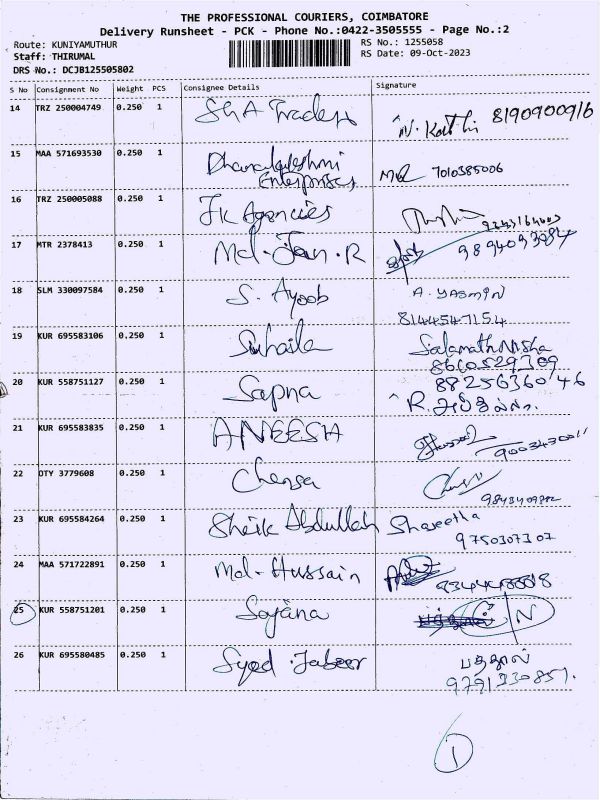 THE PROFESSIONAL COURIERS, COIMBATORE
Delivery Runsheet - PCK - Phone No.:0422-3505555 - Page No.:2
Route: KUNIYAMUTHUR RS No.: 1255058
Staff: THIRUMAL RS Date: 09-Oct-2023
DRS No.: DCJB125505802
S No Consignment No Weight PCS Consignee Details Signature
14 TRZ 250004749 0.250 1 ShA Traders 8190900916
15 MAA 571693530 0.250 1 Dhanalakshmi
Enterprises 7010385006
16 TRZ 250005088 0.250 1 JK Agencies
17 MTR 2378413 0.250 1 Md. Jan. R
18 SLM 330097584 0.250 1 S. Ayoob A. YASMIN
8144547154
19 KUR 695583106 0.250 1 Suhaila Salamath Nisha
8660529309
20 KUR 558751127 0.250 1 Sapna 8825636046
R.
21 KUR 695583835 0.250 1 ANEESH
22 DTY 3779608 0.250 1
23 KUR 695584264 0.250 1 Sheik Abdullah Shareetha
9750307307
24 MAA 571722891 0.250 1 Md. Hussain
25 KUR 558751201 0.250 1 Sajana C/N
26 KUR 695580485 0.250 1 Syed. Jabeer
9791330857.
1